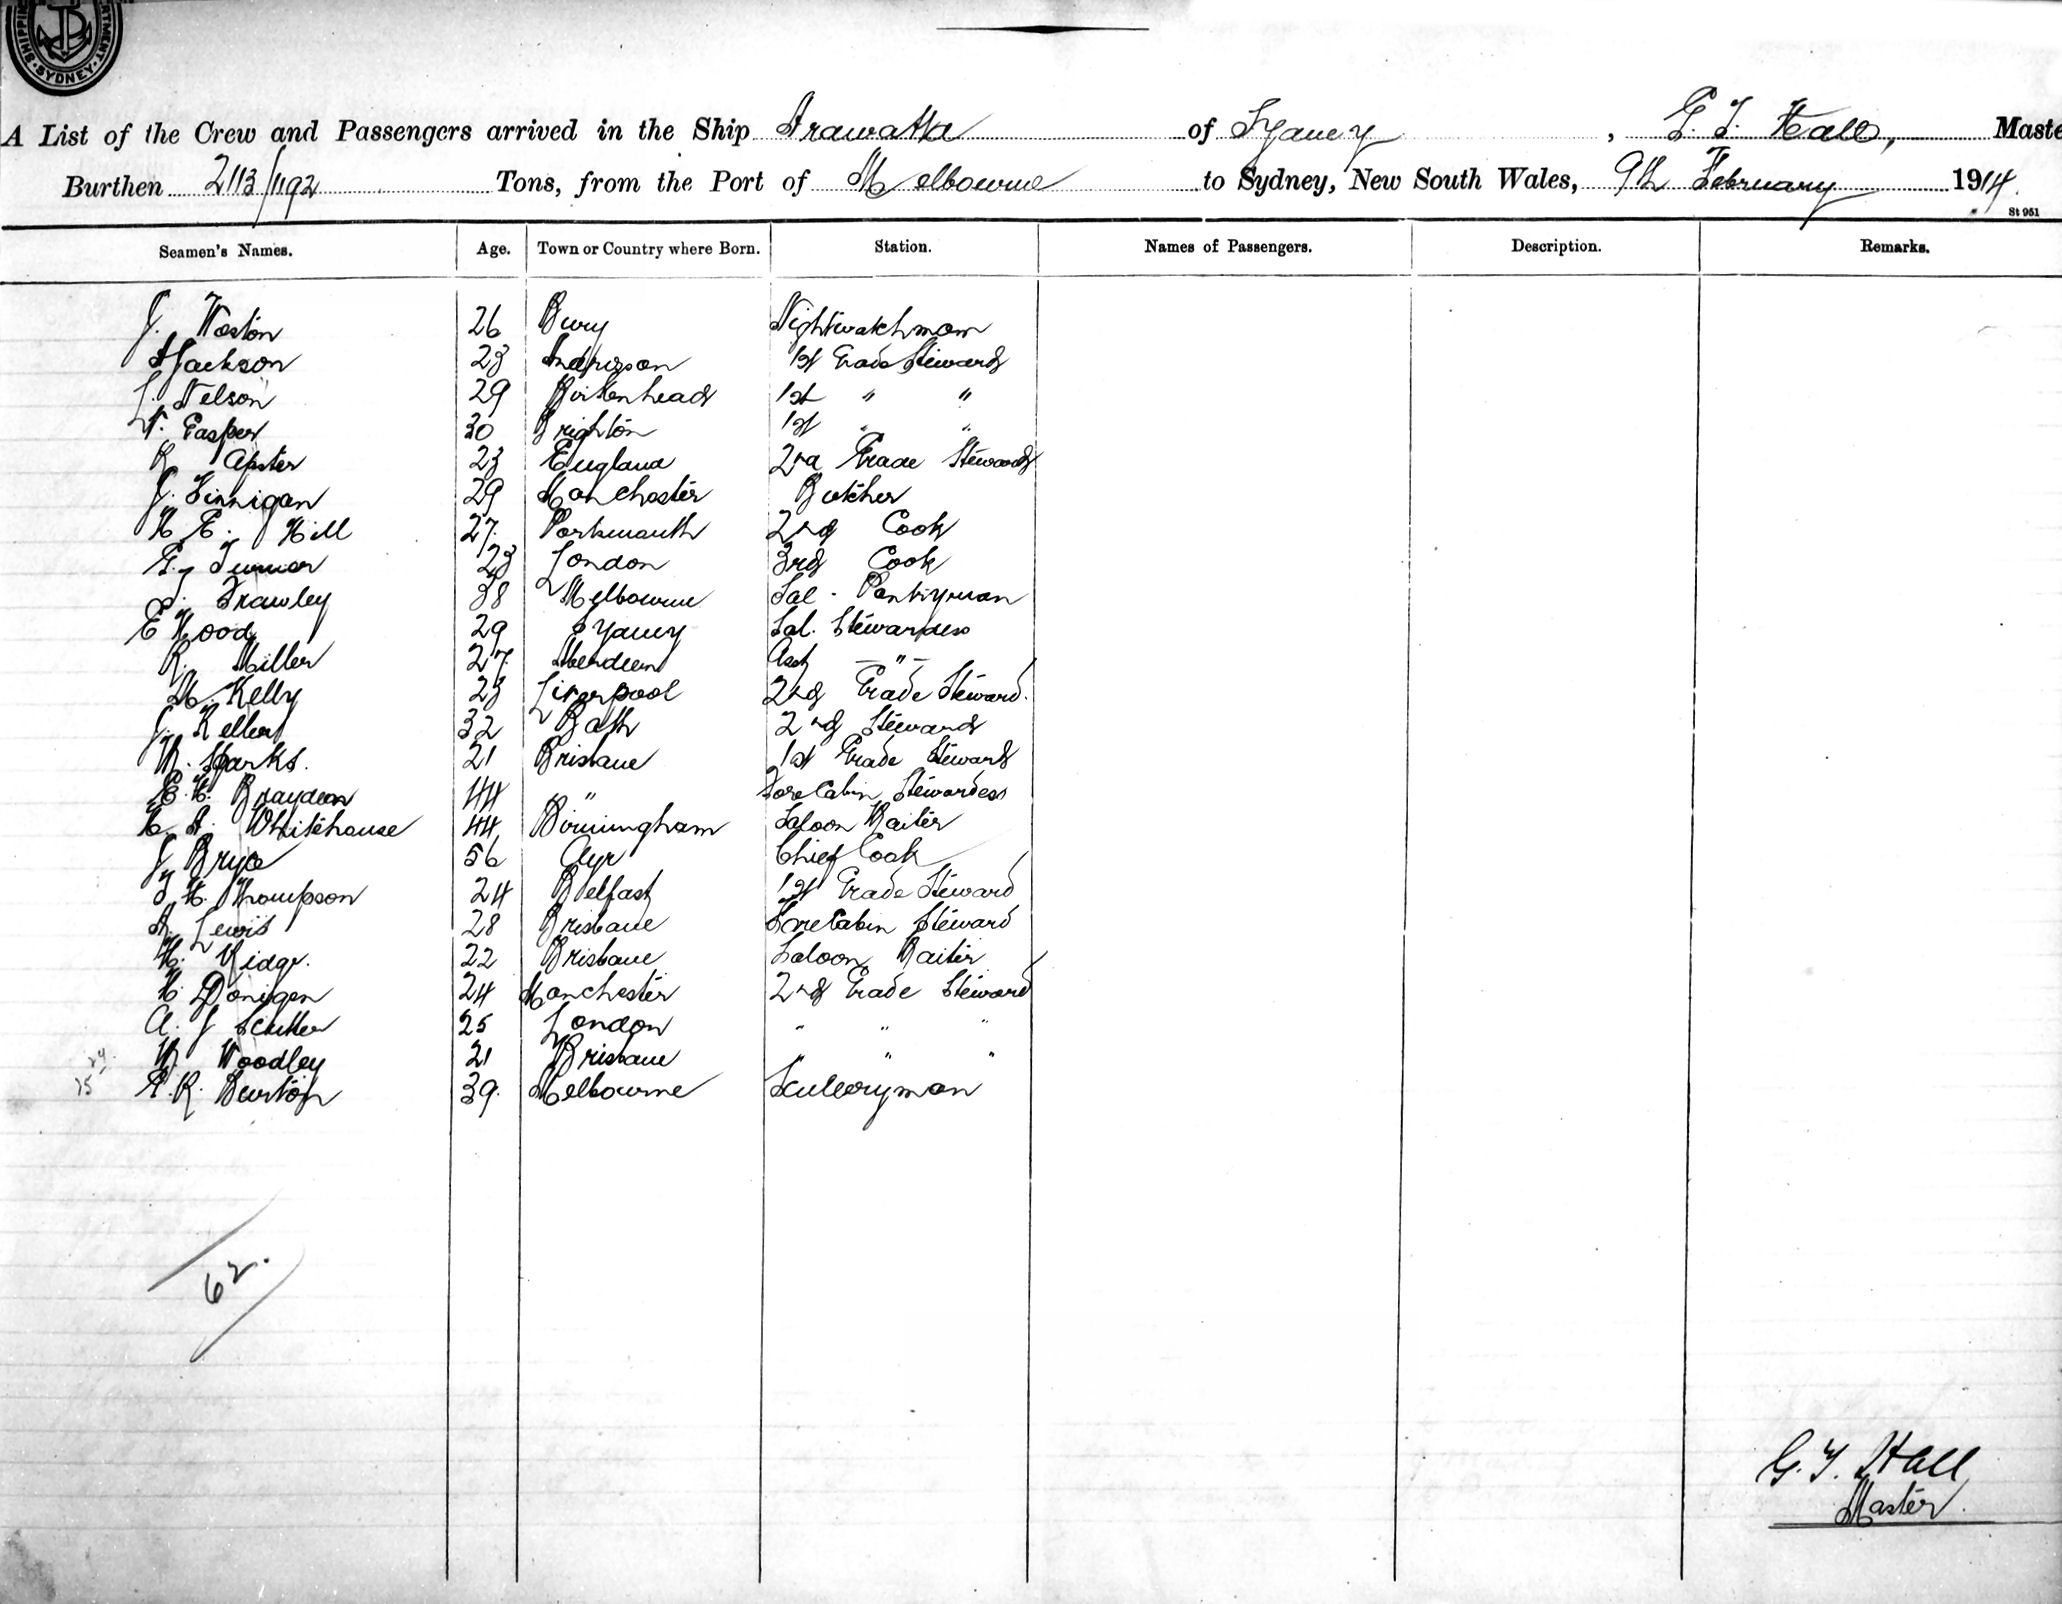 SHIPPING DEPARTMENT. SYDNEY.
A List of the Crew and Passengers arrived in the Ship Arawatta of Sydney, G. T. Hall, Maste
Burthen 2113/1192 Tons, from the Port of Melbourne to Sydney, New South Wales, 9th February 1914
St 951
Seamen's Names. Age. Town or Country where Born. Station. Names of Passengers. Description. Remarks.
J. Weston 26 Bury Nightwatchman
A Jackson 23 1st Grade Steward
L. Nelson 29 Birkenhead 1st " "
Gasper 30 Brighton 1st " "
R 23 England 2nd Grade Steward
J. Finnigan 29 Manchester Butcher
H. E. Hill 27 Portsmouth 2nd Cook
G. Turner 23 London 3rd Cook
J. Frawley 38 Melbourne Sal. Pantryman
E Wood 29 Sydney Sal. Stewardess
R. Miller 27 Aberdeen Asst — " —
M. Kelly 23 Liverpool 2nd Grade Steward.
J. Keller 32 Bath 2nd Steward
W. Sparks. 21 Brisbane 1st Grade Steward
E. H. Braydon 44 " " ForeCabin Stewardess
H. A. Whitehouse 44 Birmingham Saloon Waiter
J Bryce 56 Ayr Chief Cook
J. H. Thompson 24 Belfast 1st Grade Steward
A. Lewis 28 Brisbane ForeCabin Steward
H. Ridge. 22 Brisbane Saloon Waiter
H. Donigan 24 Manchester 2nd Grade Steward
A. J 25 London " " "
24. W Woodley 21 Brisbane " " "
25 G. R. Burton 39. Melbourne Sculleryman
62.
G. T. Hall
Master.